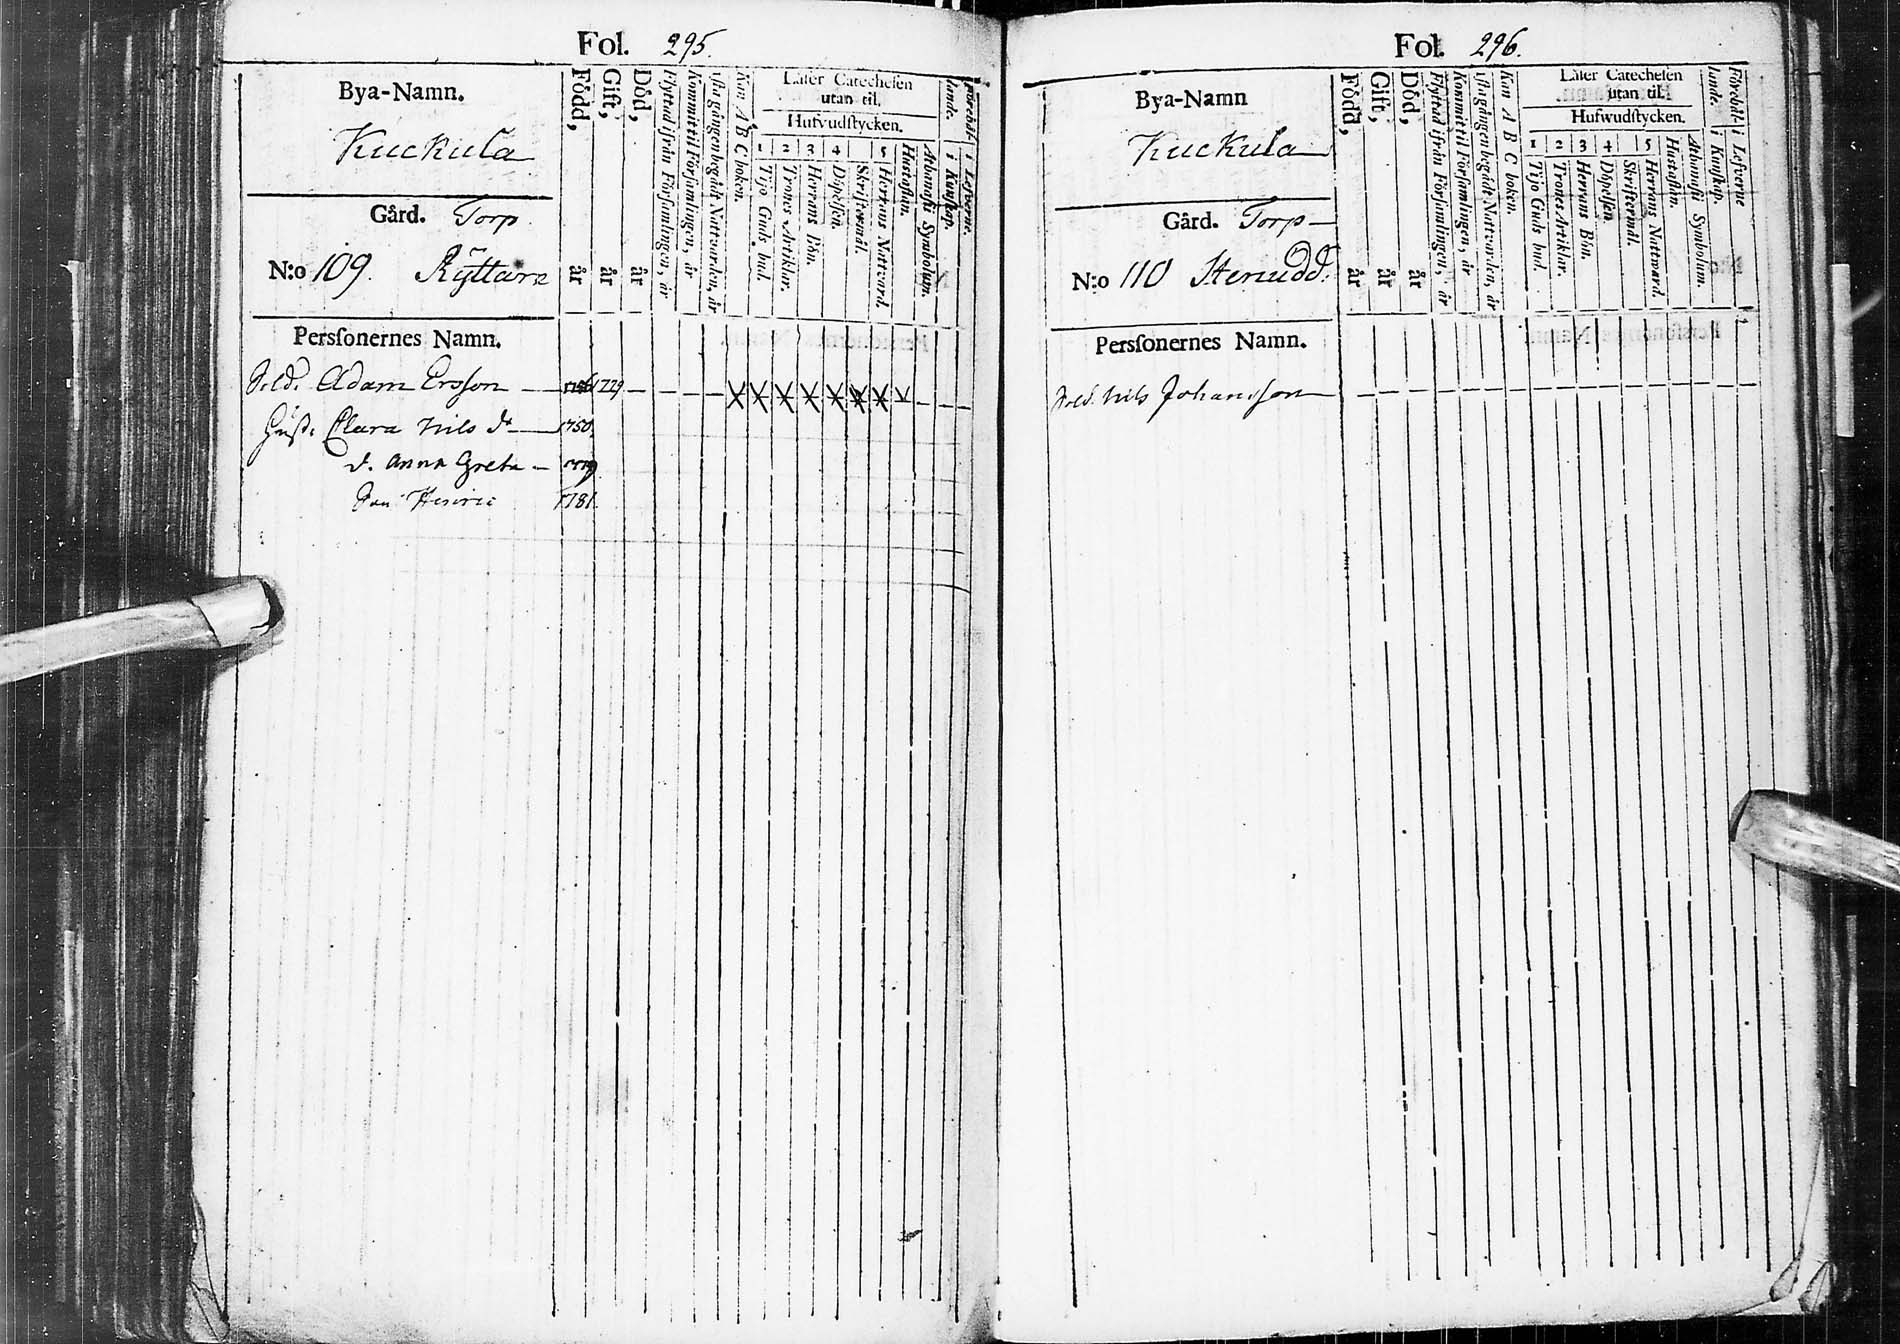 Fol. 295.
Bya-Namn.
Kuckula
Gård. Torp.
N:o 109. Ryttare
Född, år
Gift, år
Död, år
Flyttad ifrån Församlingen, år
Kommit til Församlingen, år
1sta gången begådt Nattvarden, år
Kan A B C boken.
Läser Catechesen
utan til.
Hufvudstycken.
1 2 3 4 5
Tijo Guds bud.
Trones Artiklar.
Herrans Bön.
Döpelsen.
Skriftermål.
Herrans Nattvard.
Hustaflan.
Athanasii Symbolum.
i Kunskap.
i Lefverne.
Personernes Namn.
Sold. Adam Ersson 1756 1779
Hust. Clara Nils dr 1750.
d. Anna Greta 1779
Son Henric 1781.
Fol. 296.
Bya-Namn
Kuckula
Gård. Torp
N:o 110 Stenudd.
Född, år
Gift, år
Död, år
Flyttad ifrån Församlingen, år
Kommit til Församlingen, år
1sta gången begådt Nattvarden, år
Kan A B C boken.
Läser Catechesen
utan til.
Hufwudstycken.
1 2 3 4 5
Tijo Guds bud.
Trones Artiklar.
Herrans Bön.
Döpelsen.
Skriftermål.
Herrans Nattward.
Hustaflan.
Athanasii Symbolum.
i Kunskap.
i Lefverne
Personernes Namn.
Sold. Nils Johansson